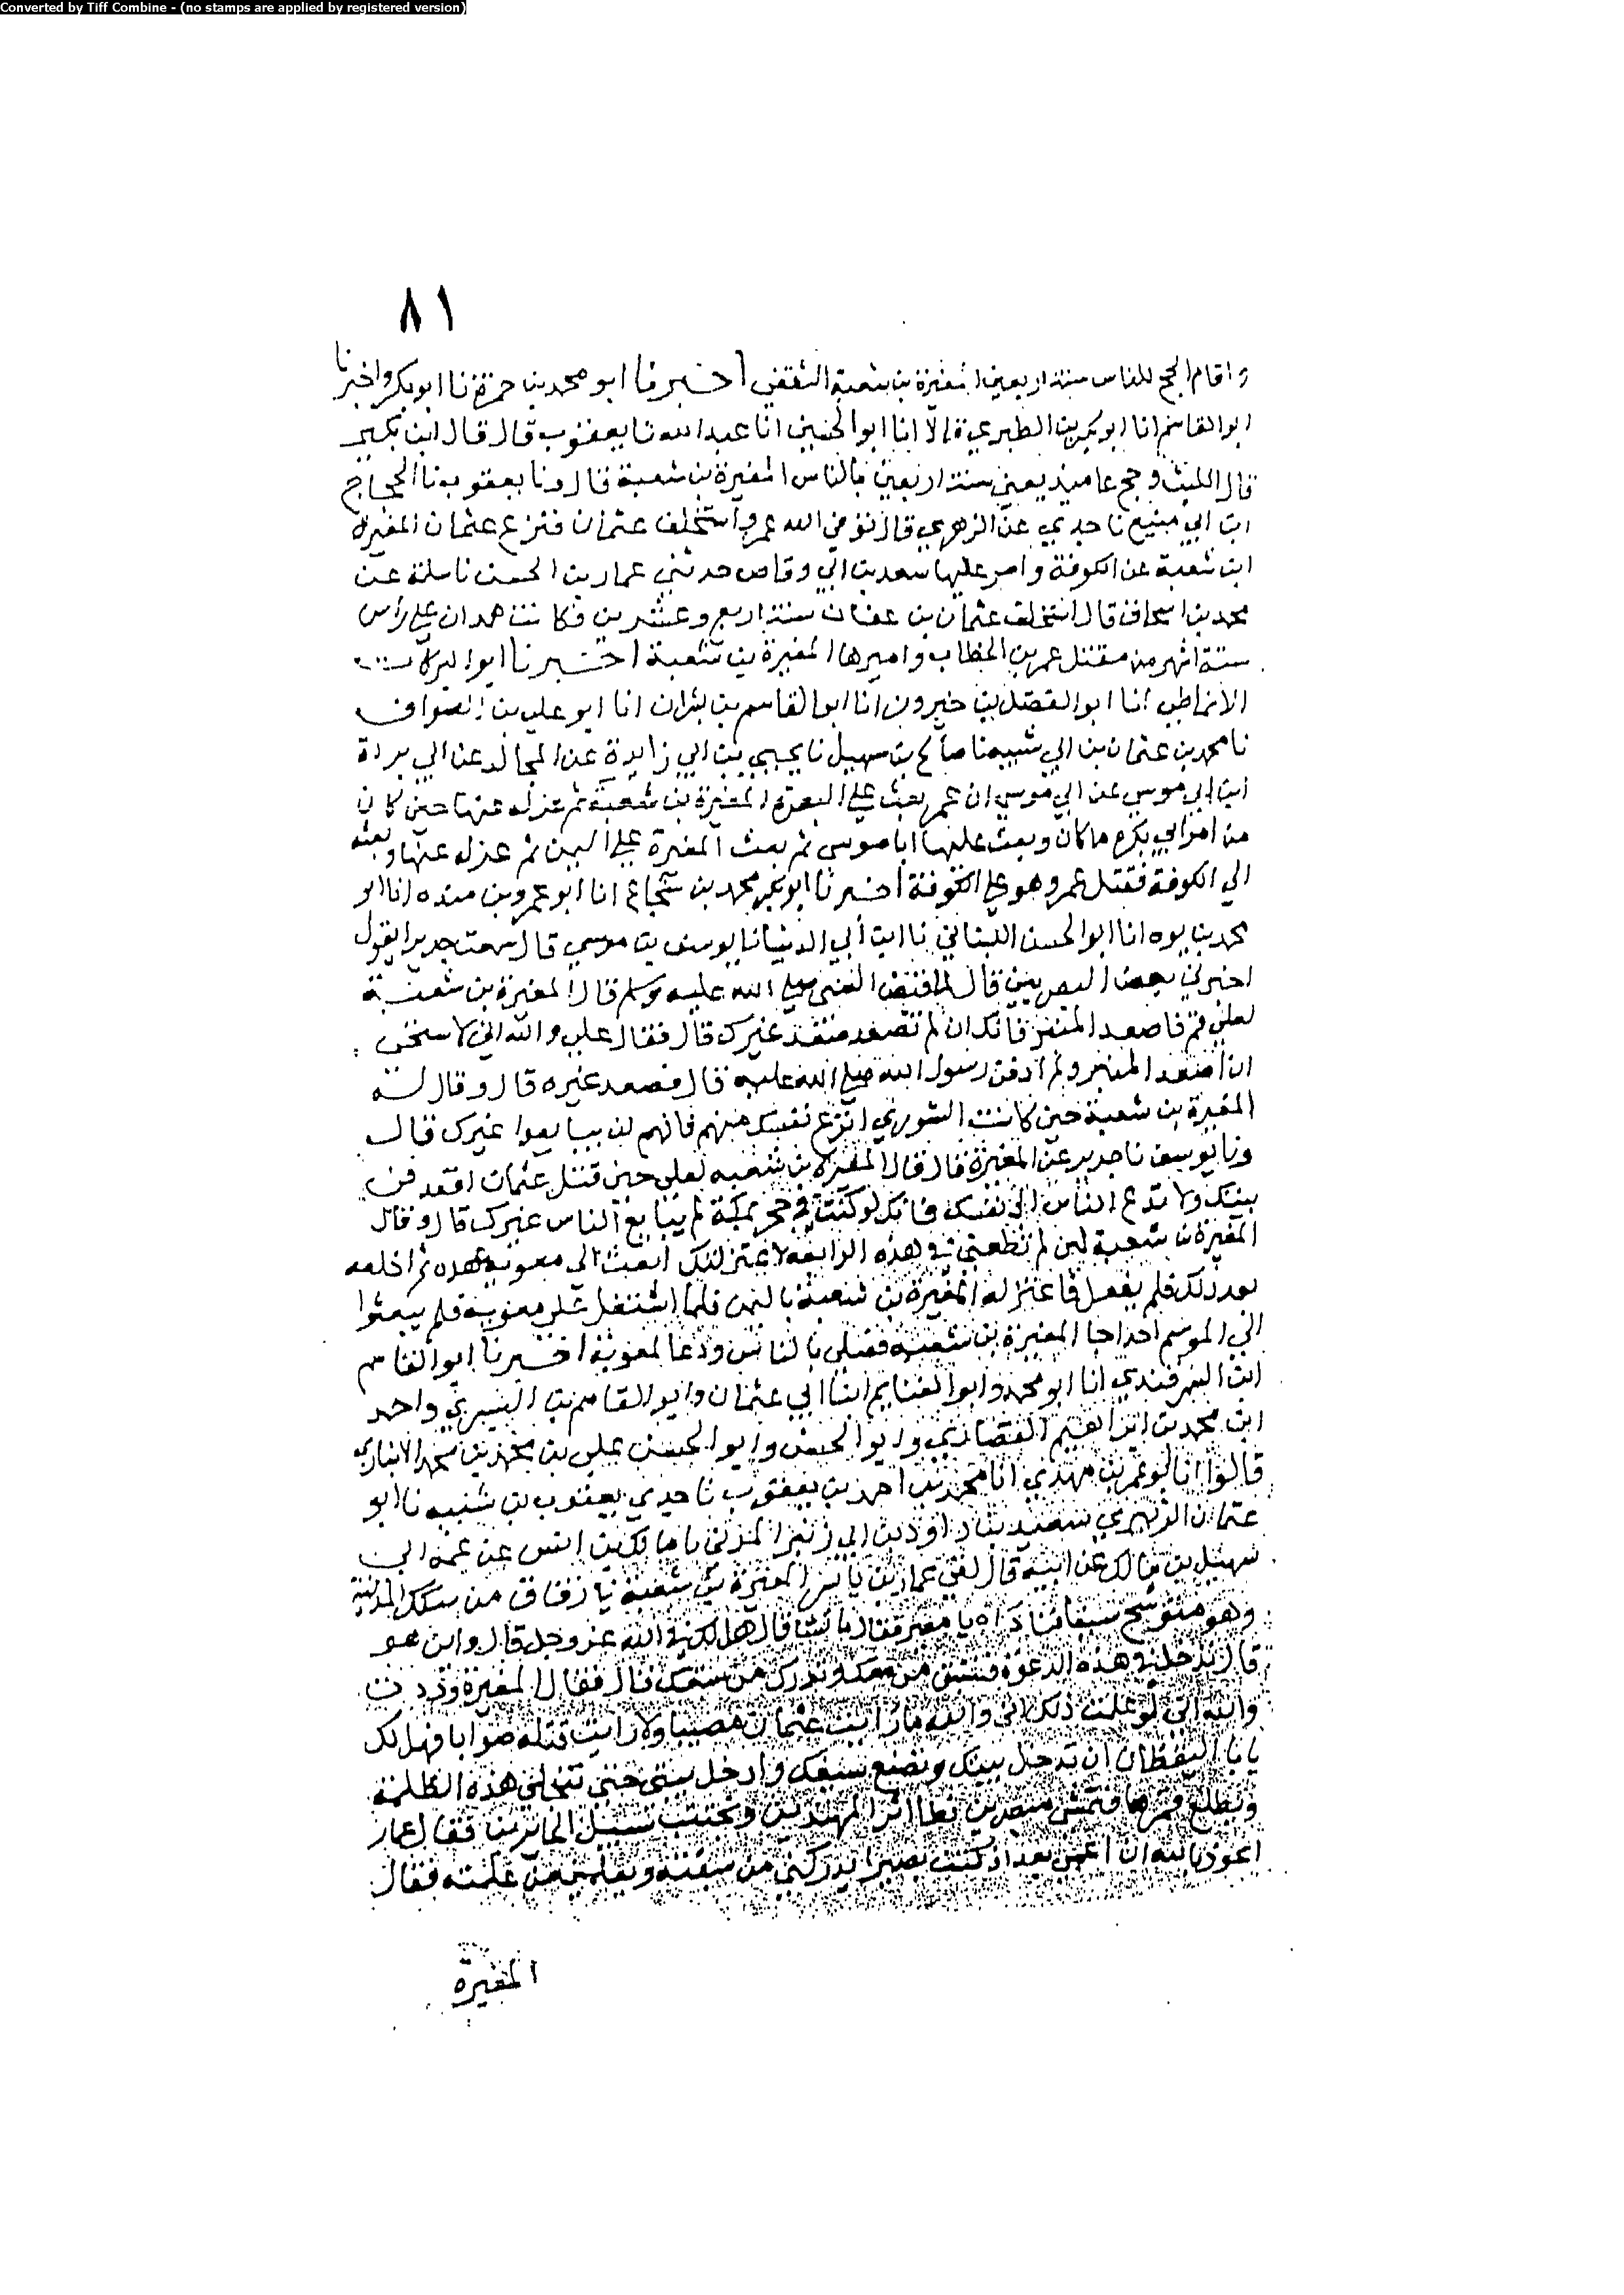 Converted by Tiff Combine - (no stamps are applied by registered version)
٨١
واقام الحج للناس سنة اربعين المغيرة بن شعبة الثقفي اخبرنا ابو محمد بن حمزة نا ابو بكر واخبرنا
ابو القاسم انا ابو بكر بن الطبري قالا انا ابو الحسين انا عبد الله نا يعقوب قال قال ابن بكير
قال الليث وحج عامئذ يعني سنة اربعين بالناس المغيرة بن شعبة قال ونا يعقوب نا الحجاج
ابن ابي منيع نا جدي عن الزهري قال توفي الله عمر واستخلف عثمان فنزع عثمان المغيرة
ابن شعبة عن الكوفة وامر عليها سعد بن ابي وقاص حدثني عمار بن الحسن نا سلمة عن
محمد بن اسحاق قال استخلف عثمان بن عفان سنة اربع وعشرين فكانت همدان على رأس
ستة اشهر من مقتل عمر بن الخطاب واميرها المغيرة بن شعبة اخبرنا ابو البركات
الانماطي انا ابو الفضل بن خيرون انا ابو القاسم بن بشران انا ابو علي بن الصواف
نا محمد بن عثمان بن ابي شيبة نا صالح بن سهيل نا يحيى بن ابي زايدة عن المجالد عن ابي بردة
ابن ابي موسى عن ابي موسى ان عمر بعث على البصرة المغيرة بن شعبة ثم عزله عنها حين كان
من امر ابي بكرة ما كان وبعث عليها ابا موسى ثم بعث المغيرة على اليمن ثم عزله عنها وبعثه
الى الكوفة فقتل عمر وهو على الكوفة اخبرنا ابو بكر محمد بن شجاع انا ابو عمرو بن منده انا ابو
محمد بن يوه انا ابو الحسن اللنباني نا ابن أبي الدنيا نا يوسف بن موسى قال سمعت جريرا يقول
اخبرني بعض البصريين قال لما قبض النبي صلى الله عليه وسلم قال المغيرة بن شعبة
لعلي قم فاصعد المنبر فانك ان لم تصعد صعد غيرك قال فقال علي والله اني لاستحي
ان اصعد المنبر ولم ادفن رسول الله صلى الله عليه قال فصعد غيره قال وقال له
المغيرة بن شعبة حين كانت الشورى انزع نفسك منهم فانهم لن يبايعوا غيرك قال
ونا يوسف نا جرير عن المغيرة قال قال المغيرة بن شعبه لعلي حين قتل عثمان اقعد في
بيتك ولا تدع الناس الى نفسك فانك لو كنت في جحر بمكة لم يبايع الناس غيرك قال وقال
المغيرة بن شعبة لين لم تطعني في هذه الرابعة لاعتزلنك ابعث الى معوية عهده ثم اخلعه
بعد ذلك فلم يفعل فاعتزله المغيرة بن شعبة باليمن فلما اشتغل علي ومعوية فلم يبعثوا
الى الموسم احدا جا المغيرة بن شعبة فصلى بالناس ودعا لمعوية اخبرنا ابو القاسم
ابن السمرقندي انا ابو محمد وابو الغنايم ابنا ابي عثمان وابو القاسم بن البسري واحمد
ابن محمد بن ابراهيم القصاري وابو الحسن علي بن محمد بن محمد الانباري
قالوا انا ابو عمر بن مهدي انا محمد بن احمد بن يعقوب نا جدي يعقوب بن شيبه نا ابو
عثمان الزبيري سعيد بن داود بن ابي زنبر المدني نا مالك بن انس عن عمه ابي
سهيل بن مالك عن ابيه قال لقي عمار بن ياسر المغيرة بن شعبة في زقاق من سكك المدينة
وهو متوشح سيفا فناداه يا مغير فقال ما تشا قال هل لك في الله عز وجل قال واين هو
قال تدخل في هذه الدعوة فتسبق من معك وتدرك من سبقك قال فقال المغيرة وددت
والله اني لو علمت ذلك اني والله ما رايت عثمان مصيبا ولا رايت قتله صوابا فهل لك
يابا اليقظان ان تدخل بيتك وتضع سيفك وادخل بيتي حتى تنجلي هذه الظلمة
ويطلع قمرها فنمشي مبصرين نطا اثر المهتدين ونجتنب سبيل الحايرين فقال عمار
اعوذ بالله ان اعمى بعد اذ كنت بصيرا يدركني من سبقته ويعلمني من علمته فقال
المغيرة